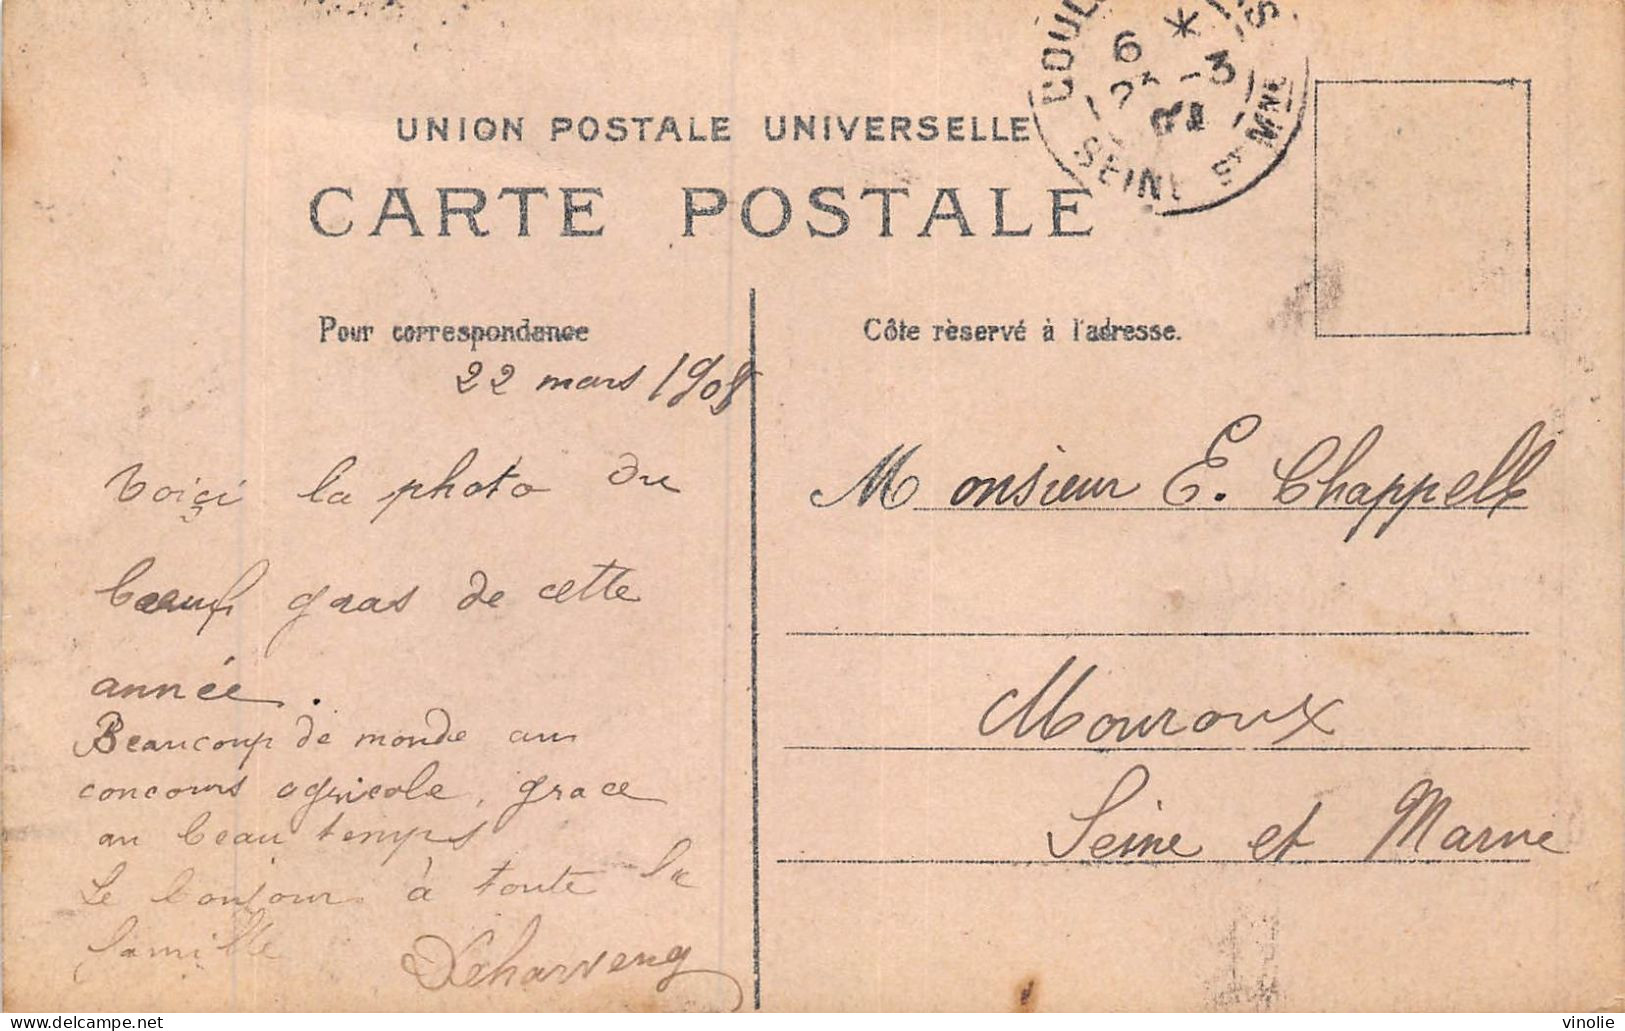 UNION POSTALE UNIVERSELLE
CARTE POSTALE
COUL
6 *
-3
SEINE & MNE
Pour correspondance
Côte rèservé à l'adresse.
22 mars 1908
Voiçi la photo du
boeuf gras de cette
année.
Beaucoup de monde au
concours agricole, grace
au beau temps
Le bonjour à toute la
famille
Monsieur E. Chappelle
Mouroux
Seine et Marne
delcampe.net
vinolie